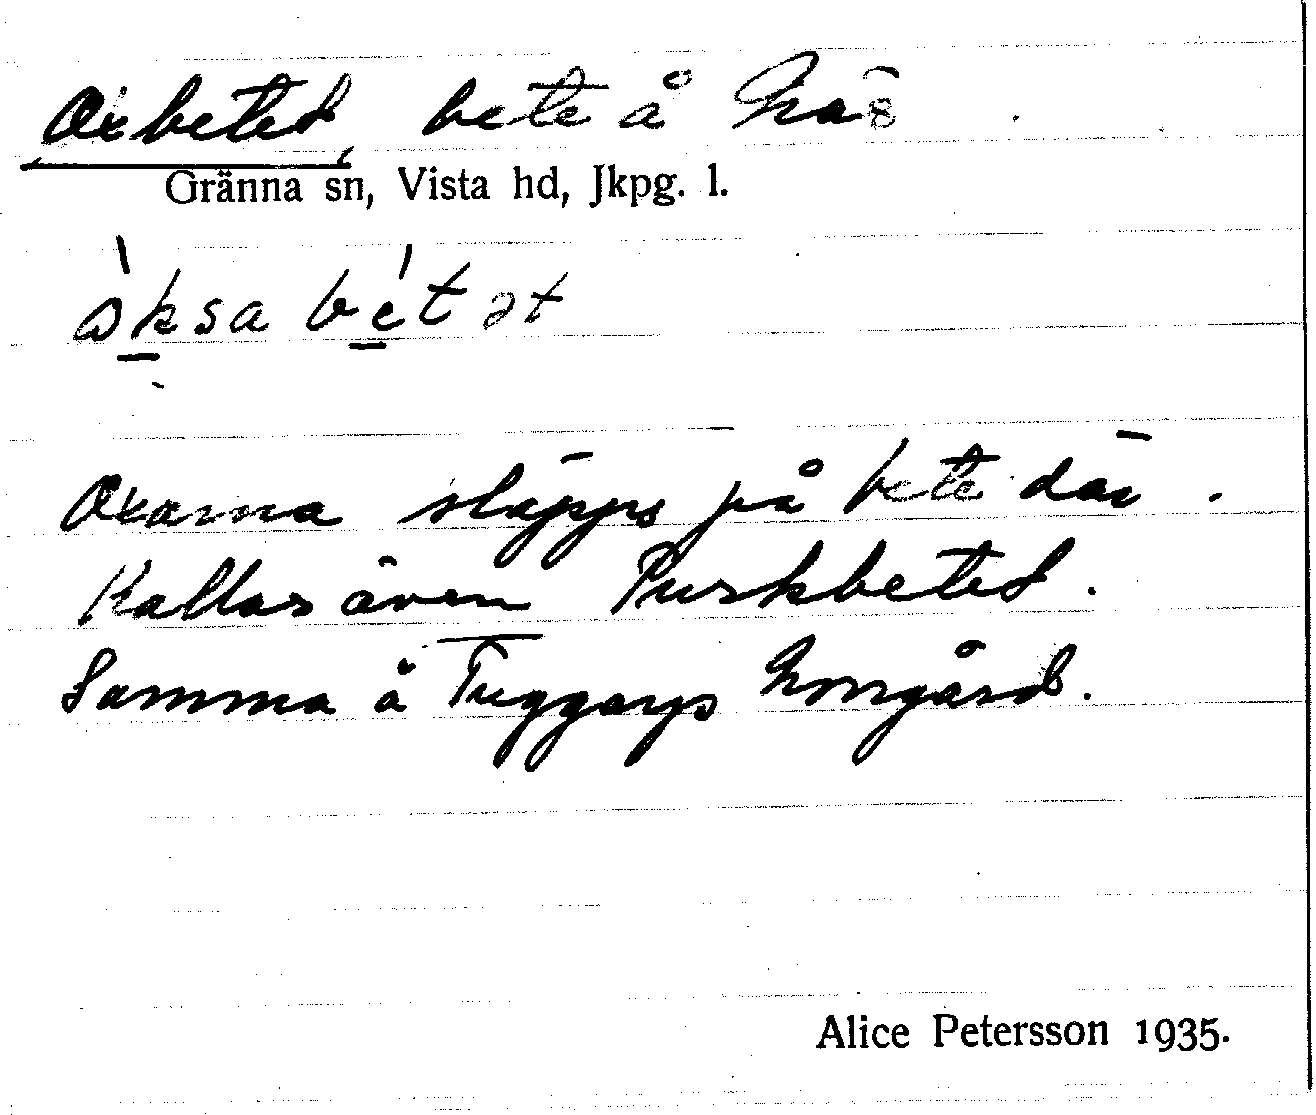 Oxbetet, bete å Näs
Gränna sn, Vista hd, Jkpg. l.
ɔ̀ksa bét ət
Oxarna släpps på bete där.
Kallas även Purkbetet.
Samma å Tuggarps Norrgård.
Alice Petersson 1935.